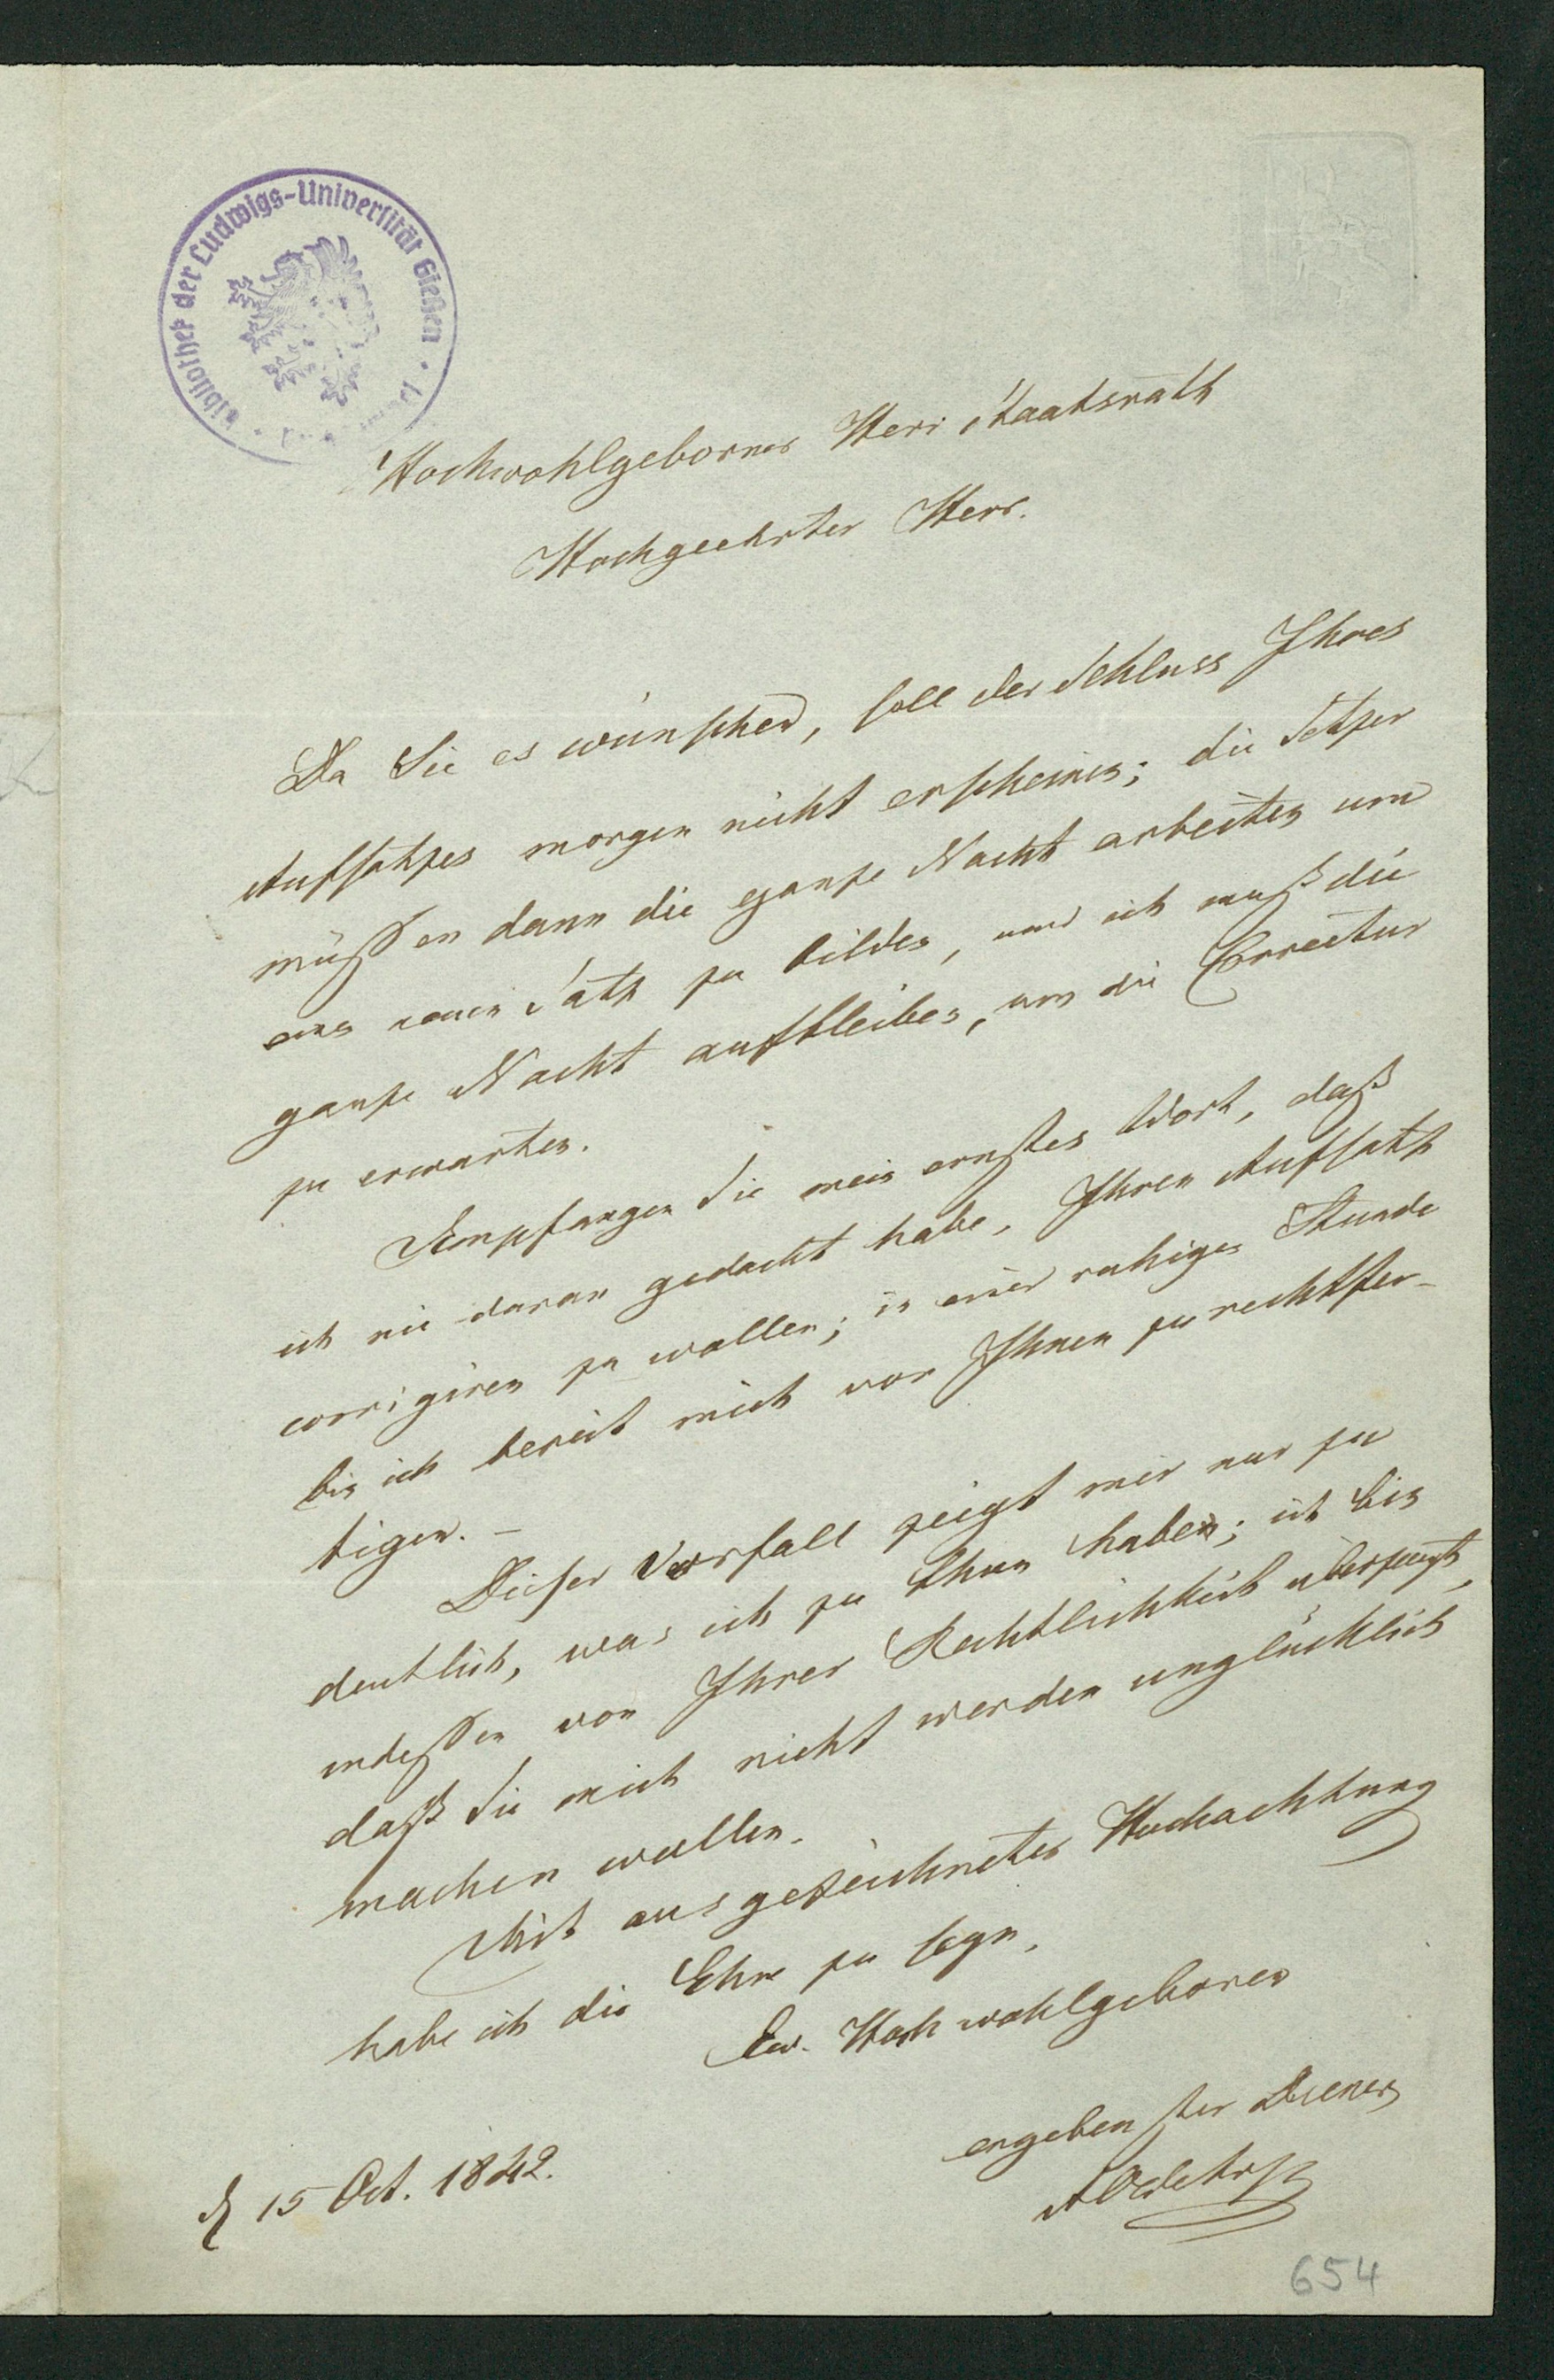 Bibliothek der Ludwigs-Universität Gießen
Hochwohlgeborner Herr Staatsrath
Hochgeehrter Herr.
Da Sie es wünschen, soll der Schluss Ihres
Aufsatzes morgen nicht erscheinen; die Setzer
müssen dann die ganze Nacht arbeiten um
einen neuen Satz zu bilden, und ich muß die
ganze Nacht aufbleiben, um die Correctur
zu erwarten.
Empfangen Sie mein ernstes Wort, daß
ich nie daran gedacht habe, Ihren Aufsatz
corrigiren zu wollen; in einer ruhigen Stunde
bin ich bereit mich vor Ihnen zu rechtfer-
tigen. –
Dieser Vorfall zeigt mir nur zu
deutlich, was ich zu thun habe; ich bin
indessen von Ihrer Rechtlichkeit überzeugt,
daß Sie mich nicht werden unglücklich
machen wollen.
Mit ausgezeichneter Hochachtung
habe ich die Ehre zu seyn,
Ew. Hochwohlgeboren
ergebenster Diener
15 Oct. 1842.
654